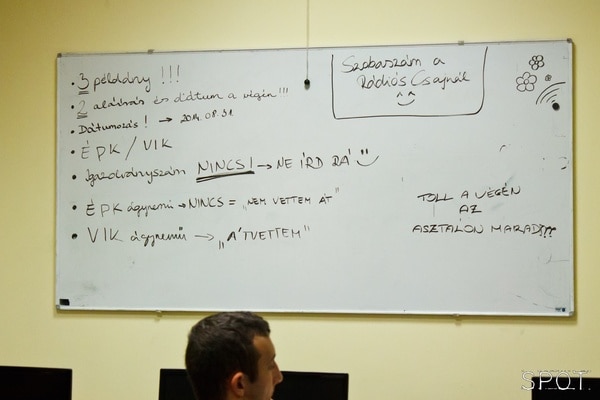 • 3 példány !!!
• 2 aláírás és dátum a végén !!!
• Dátumozás! → 2014.08.31.
• ÉPK / VIK
• Igazolványszám NINCS! → NE ÍRD RÁ
• ÉPK ágynemű → NINCS = „NEM VETTEM ÁT"
• VIK ágynemű → „ÁTVETTEM"
Szobaszám a
Rádiós Csajnál
TOLL A VÉGÉN
AZ
ASZTALON MARAD!!!
S.P.O.T.